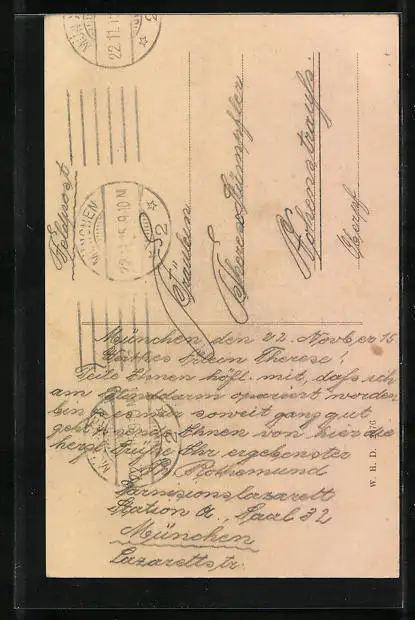 Feldpost
MÜNCHEN
22.11.15.9-10 N
2
Fräulein
Therese
Vohenstrauß
München den 22. Novber 15.
Wertes Frlein Therese!
Teile Ihnen höfl. mit, dass ich
am Blinddarm operiert worden
bin, es mir soweit ganz gut
geht. Sende Ihnen von hier die
herzl. Grüße Ihr ergebenster
Rothemund
Garnisonslazarett
Station A., Saal 32
München
Lazarettstr.
W. R. D.